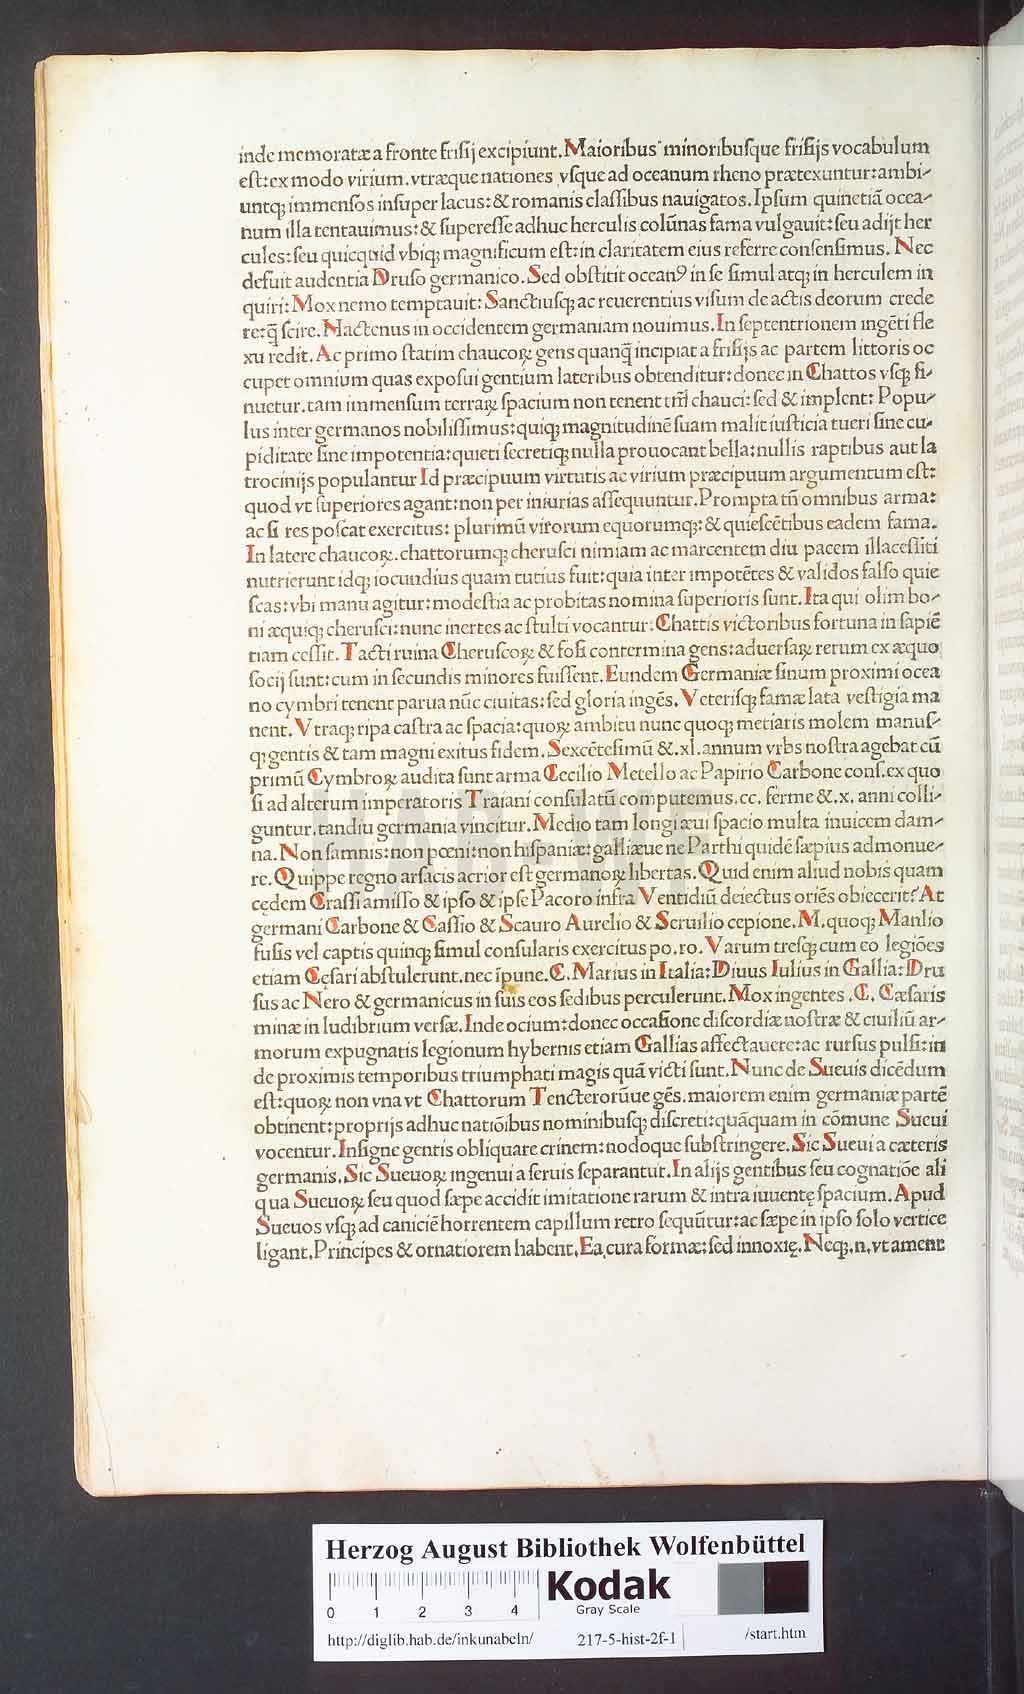 inde memoratæ a fronte friſij excipiunt. Maioribus minoribuſque friſijs vocabulum
eſt: ex modo virium. vtræque nationes vſque ad oceanum rheno prætexuntur: ambi-
untqȝ immenſos inſuper lacus: & romanis claſſibus nauigatos. Ipſum quinetiā ocea-
num illa tentauimus: & ſupereſſe adhuc herculis colūnas fama vulgauit: ſeu adijt her
cules: ſeu quicquid vbiqȝ magnificum eſt: in claritatem eius referre conſenſimus. Nec
defuit audentia Druſo germanico. Sed obſtitit oceanꝰ in ſe ſimul atqȝ in herculem in
quiri: Mox nemo temptauit: Sanctiuſqȝ ac reuerentius viſum de actis deorum crede
re: q̄ ſcire. Nactenus in occidentem germaniam nouimus. In ſeptentrionem ingēti fle
xu redit. Ac primo ſtatim chaucoꝝ gens quanq̄ incipiat a friſijs ac partem littoris oc
cupet omnium quas expoſui gentium lateribus obtenditur: donec in Chattos vſqȝ ſi-
nuetur. tam immenſum terraꝝ ſpacium non tenent tm̄ chauci: ſed & implent: Popu-
lus inter germanos nobiliſſimus: quiqȝ magnitudinē ſuam malit iuſticia tueri ſine cu-
piditate ſine impotentia: quieti ſecretiqȝ nulla prouocant bella: nullis raptibus aut la
trocinijs populantur Id præcipuum virtutis ac virium præcipuum argumentum eſt:
quod vt ſuperiores agant: non per iniurias aſſequuntur. Prompta tn̄ omnibus arma:
ac ſi res poſcat exercitus: plurimū virorum equorumqȝ: & quieſcētibus eadem fama.
In latere chaucoꝝ. chattorumqȝ cheruſci nimiam ac marcentem diu pacem illaceſſiti
nutrierunt idqȝ iocundius quam tutius fuit: quia inter impotētes & validos falſo quie
ſcas: vbi manu agitur: modeſtia ac probitas nomina ſuperioris ſunt. Ita qui olim bo-
ni æquiqȝ cheruſci: nunc inertes ac ſtulti vocantur: Chattis victoribus fortuna in ſapiē
tiam ceſſit. Tacti ruina Cheruſcoꝝ & foſi contermina gens: aduerſaꝝ rerum ex æquo
ſocij ſunt: cum in ſecundis minores fuiſſent. Eundem Germaniæ ſinum proximi ocea
no cymbri tenent parua nūc ciuitas: ſed gloria ingēs. Veteriſqȝ famæ lata veſtigia ma
nent. Vtraqȝ ripa caſtra ac ſpacia: quoꝝ ambitu nunc quoqȝ metiaris molem manuſ-
qȝ gentis & tam magni exitus fidem. Sexcēteſimū &. xl. annum vrbs noſtra agebat cū
primū Cymbroꝝ audita ſunt arma Cecilio Metello ac Papirio Carbone conſ. ex quo
ſi ad alterum imperatoris Traiani conſulatū computemus. cc. ferme &. x. anni colli-
guntur. tandiu germania vincitur. Medio tam longi æui ſpacio multa inuicem dam-
na. Non ſamnis: non pœni: non hiſpaniæ: galliæue ne Parthi quidē ſæpius admonue-
re. Quippe regno arſacis acrior eſt germanoꝝ libertas. Quid enim aliud nobis quam
cędem Craſſi amiſſo & ipſo & ipſe Pacoro infra Ventidiū deiectus oriēs obiecerit? At
germani Carbone & Caſſio & Scauro Aurelio & Seruilio cepione. M. quoqȝ Manlio
fuſis vel captis quinqȝ ſimul conſularis exercitus po. ro. Varum treſqȝ cum eo legiōes
etiam Cęſari abſtulerunt. nec īpune. C. Marius in Italia: Diuus Iulius in Gallia: Dru
ſus ac Nero & germanicus in ſuis eos ſedibus perculerunt. Mox ingentes . C. Cæſaris
minæ in ludibrium verſæ. Inde ocium: donec occaſione diſcordiæ noſtræ & ciuiliū ar-
morum expugnatis legionum hybernis etiam Gallias affectauere: ac rurſus pulſi: in
de proximis temporibus triumphati magis quā victi ſunt. Nunc de Sueuis dicēdum
eſt: quoꝝ non vna vt Chattorum Tencterorūue gēs. maiorem enim germaniæ partē
obtinent: proprijs adhuc natiōibus nominibuſqȝ diſcreti: quāquam in cōmune Sueui
vocentur. Inſigne gentis obliquare crinem: nodoque ſubſtringere. Sic Sueui a cæteris
germanis. Sic Sueuoꝝ ingenui a ſeruis ſeparantur. In alijs gentibus ſeu cognatiōe ali
qua Sueuoꝝ ſeu quod ſæpe accidit imitatione rarum & intra iuuentę ſpacium. Apud
Sueuos vſqȝ ad caniciē horrentem capillum retro ſequūtur: ac ſæpe in ipſo ſolo vertice
ligant. Principes & ornatiorem habent. Ea cura formæ: ſed innoxię. Neqȝ. n. vt ament
HAB-WF
Herzog August Bibliothek Wolfenbüttel
0 1 2 3 4
Kodak
Gray Scale
http://diglib.hab.de/inkunabeln/ 217-5-hist-2f-1 /start.htm